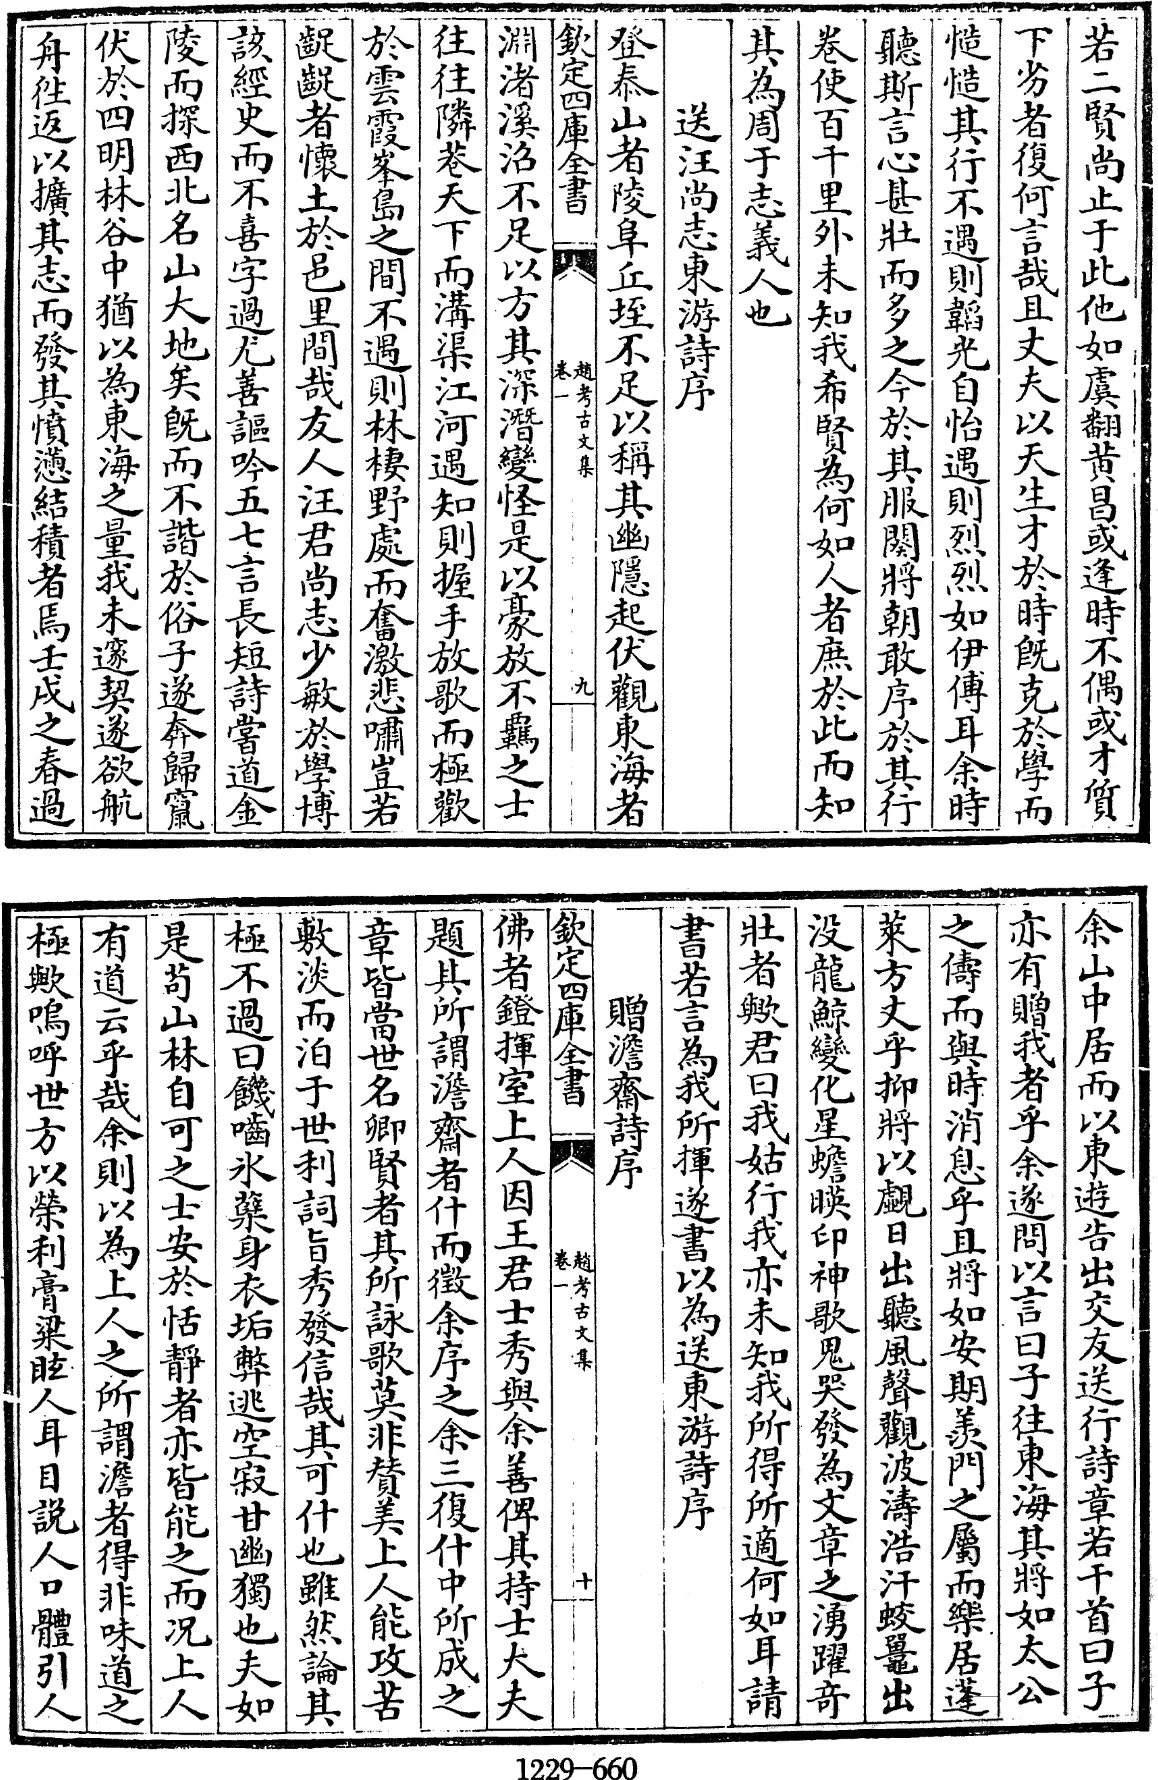 若二賢尚止于此他如虞翻黄昌或逢時不偶或才質
下劣者復何言哉且丈夫以天生才於時既克於學而
慥慥其行不遇則韜光自怡遇則烈烈如伊傅耳余時
聽斯言心甚壯而多之今於其服闋將朝敢序於其行
卷使百千里外未知我希賢為何如人者庶於此而知
其為周于志義人也
送汪尚志東游詩序
登泰山者陵阜丘垤不足以稱其幽隱起伏觀東海者
欽定四庫全書
趙考古文集
卷一
九
淵渚溪沼不足以方其深潛變怪是以豪放不羈之士
往往隣巷天下而溝渠江河遇知則握手放歌而極歡
於雲霞峯島之間不遇則林棲野處而奮激悲嘯豈若
齪齪者懷土於邑里間哉友人汪君尚志少敏於學博
該經史而不喜字過尤善謳吟五七言長短詩嘗道金
陵而探西北名山大地矣既而不諧於俗子遂奔歸竄
伏於四明林谷中猶以為東海之量我未邃契遂欲航
舟往返以擴其志而發其憤懣結積者焉壬戌之春過
余山中居而以東遊告出交友送行詩章若干首曰子
亦有贈我者乎余遂問以言曰子往東海其將如太公
之儔而與時消息乎且將如安期羨門之屬而樂居蓬
萊方丈乎抑將以覷日出聽風聲觀波濤浩汗蛟鼉出
没龍鯨變化星蟾暎印神歌鬼哭發為文章之湧躍奇
壯者歟君曰我姑行我亦未知我所得所適何如耳請
書若言為我所揮遂書以為送東游詩序
贈澹齋詩序
欽定四庫全書
趙考古文集
卷一
十
佛者鐙揮室上人因王君士秀與余善俾其持士大夫
題其所謂澹齋者什而徵余序之余三復什中所成之
章皆當世名卿賢者其所詠歌莫非賛美上人能攻苦
敷淡而泊于世利詞旨秀發信哉其可什也雖然論其
極不過曰饑嚙氷蘖身衣垢弊逃空寂甘幽獨也夫如
是苟山林自可之士安於恬靜者亦皆能之而况上人
有道云乎哉余則以為上人之所謂澹者得非味道之
極歟嗚呼世方以榮利膏粱眩人耳目説人口體引人
1229-660